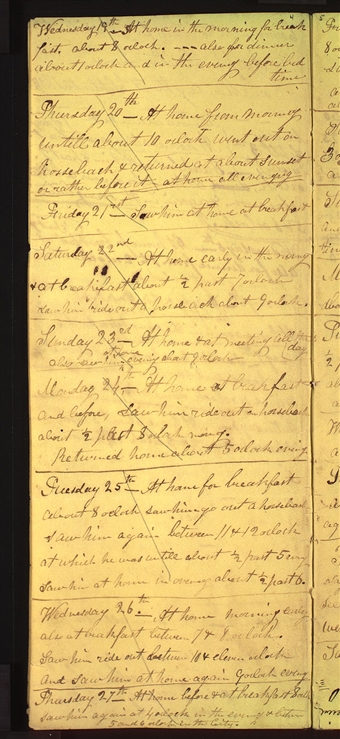 Wednesday 19th - At home in the morning for break
fast about 8 oclock. --- also for dinner
about 1 oclock and in the evening before bed
time
Thursday 20th - At home from morning
untill about 10 oclock went out on
horseback & returned at about Sunset
or rather before it - at home all evenging
Friday 21st - Saw him at home at breakfast
Saturday 22nd - At home early in the morng
& at breakfast about 1/2 past 7 oclock
saw him ride out a horse ack about 9 oclock.
Sunday 23rd - At home & at meeting all the
day
also saw him evening about 9 oclock
Monday 24th - At home at breakfast
and before, Saw him ride out on horseback
about 1/2 past 8 oclock morng.
Returned home about 5 oclock eveng
Tuesday 25th - At home for breakfast
about 8 oclock saw him go out a horseback
saw him again between 11 & 12 oclock
at which he was untill about 1/2 past 5 eveng
Saw him at home in evening about 1/2 past 6.
Wednesday 26th - At home morning early
also at breakfast between 7 & 8 oclock.
Saw him ride out between 10 & eleven oclock
and saw him at home again 9 oclock eveng
Thursday 27th At home before & at breakfast 8 oclk
saw him again at 4 oclock in the evening & between
5 and 6 oclock in the